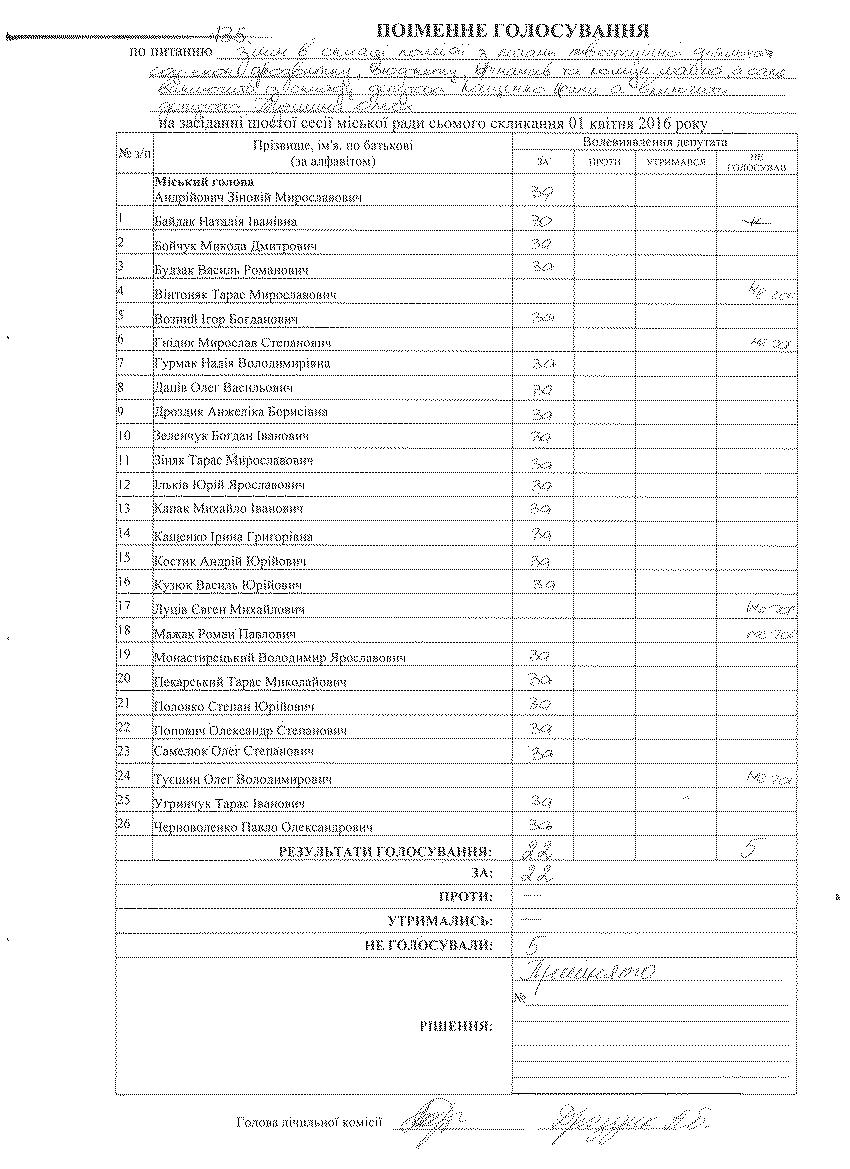 135
ПОІМЕННЕ ГОЛОСУВАННЯ
по питанню Змін в складі комісії з питань
бюджету, фінансів та
депутата Кащенко Ірини
депутата
на засіданні шостої сесії міської ради сьомого скликання 01 квітня 2016 року
№ з/п Прізвище, ім'я, по батькові (за алфавітом) Волевиявлення депутата
ЗА ПРОТИ УТРИМАВСЯ НЕ ГОЛОСУВАВ
Міський голова
Андрійович Зіновій Мирославович за
1 Байдак Наталія Іванівна за
2 Бойчук Микола Дмитрович за
3 Будзак Василь Романович за
4 Вінтоняк Тарас Мирославович не гол
5 Возний Ігор Богданович за
6 Гнідик Мирослав Степанович не гол
7 Гурмак Надія Володимирівна за
8 Даців Олег Васильович за
9 Дроздик Анжеліка Борисівна за
10 Зеленчук Богдан Іванович за
11 Зіняк Тарас Мирославович за
12 Ільків Юрій Ярославович за
13 Капак Михайло Іванович за
14 Кащенко Ірина Григорівна за
15 Костик Андрій Юрійович за
16 Кузюк Василь Юрійович за
17 Луців Євген Михайлович не гол
18 Мажак Роман Павлович не гол
19 Монастирецький Володимир Ярославович за
20 Пекарський Тарас Миколайович за
21 Половко Степан Юрійович за
22 Попович Олександр Степанович за
23 Самелюк Олег Степанович за
24 Тусшин Олег Володимирович не гол
25 Угринчук Тарас Іванович за
26 Черноволенко Павло Олександрович за
РЕЗУЛЬТАТИ ГОЛОСУВАННЯ: 22 5
ЗА: 22
ПРОТИ: —
УТРИМАЛИСЬ: —
НЕ ГОЛОСУВАЛИ: 5
РІШЕННЯ: Прийнято
№
Голова лічильної комісії Дроздик А.Б.